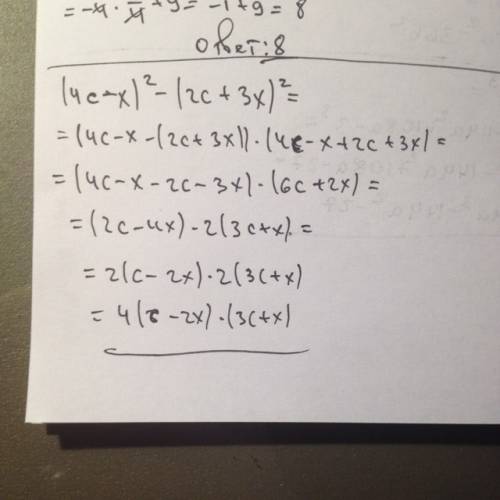 = -4 · 1/4 + 9 = -1 + 9 = 8
Ответ: 8
(4c-x)² - (2c+3x)² =
= (4c-x-(2c+3x)) · (4c-x+2c+3x) =
= (4c-x-2c-3x) · (6c+2x) =
= (2c-4x) - 2(3c+x) =
= 2(c-2x) · 2(3c+x)
= 4(c-2x) · (3c+x)